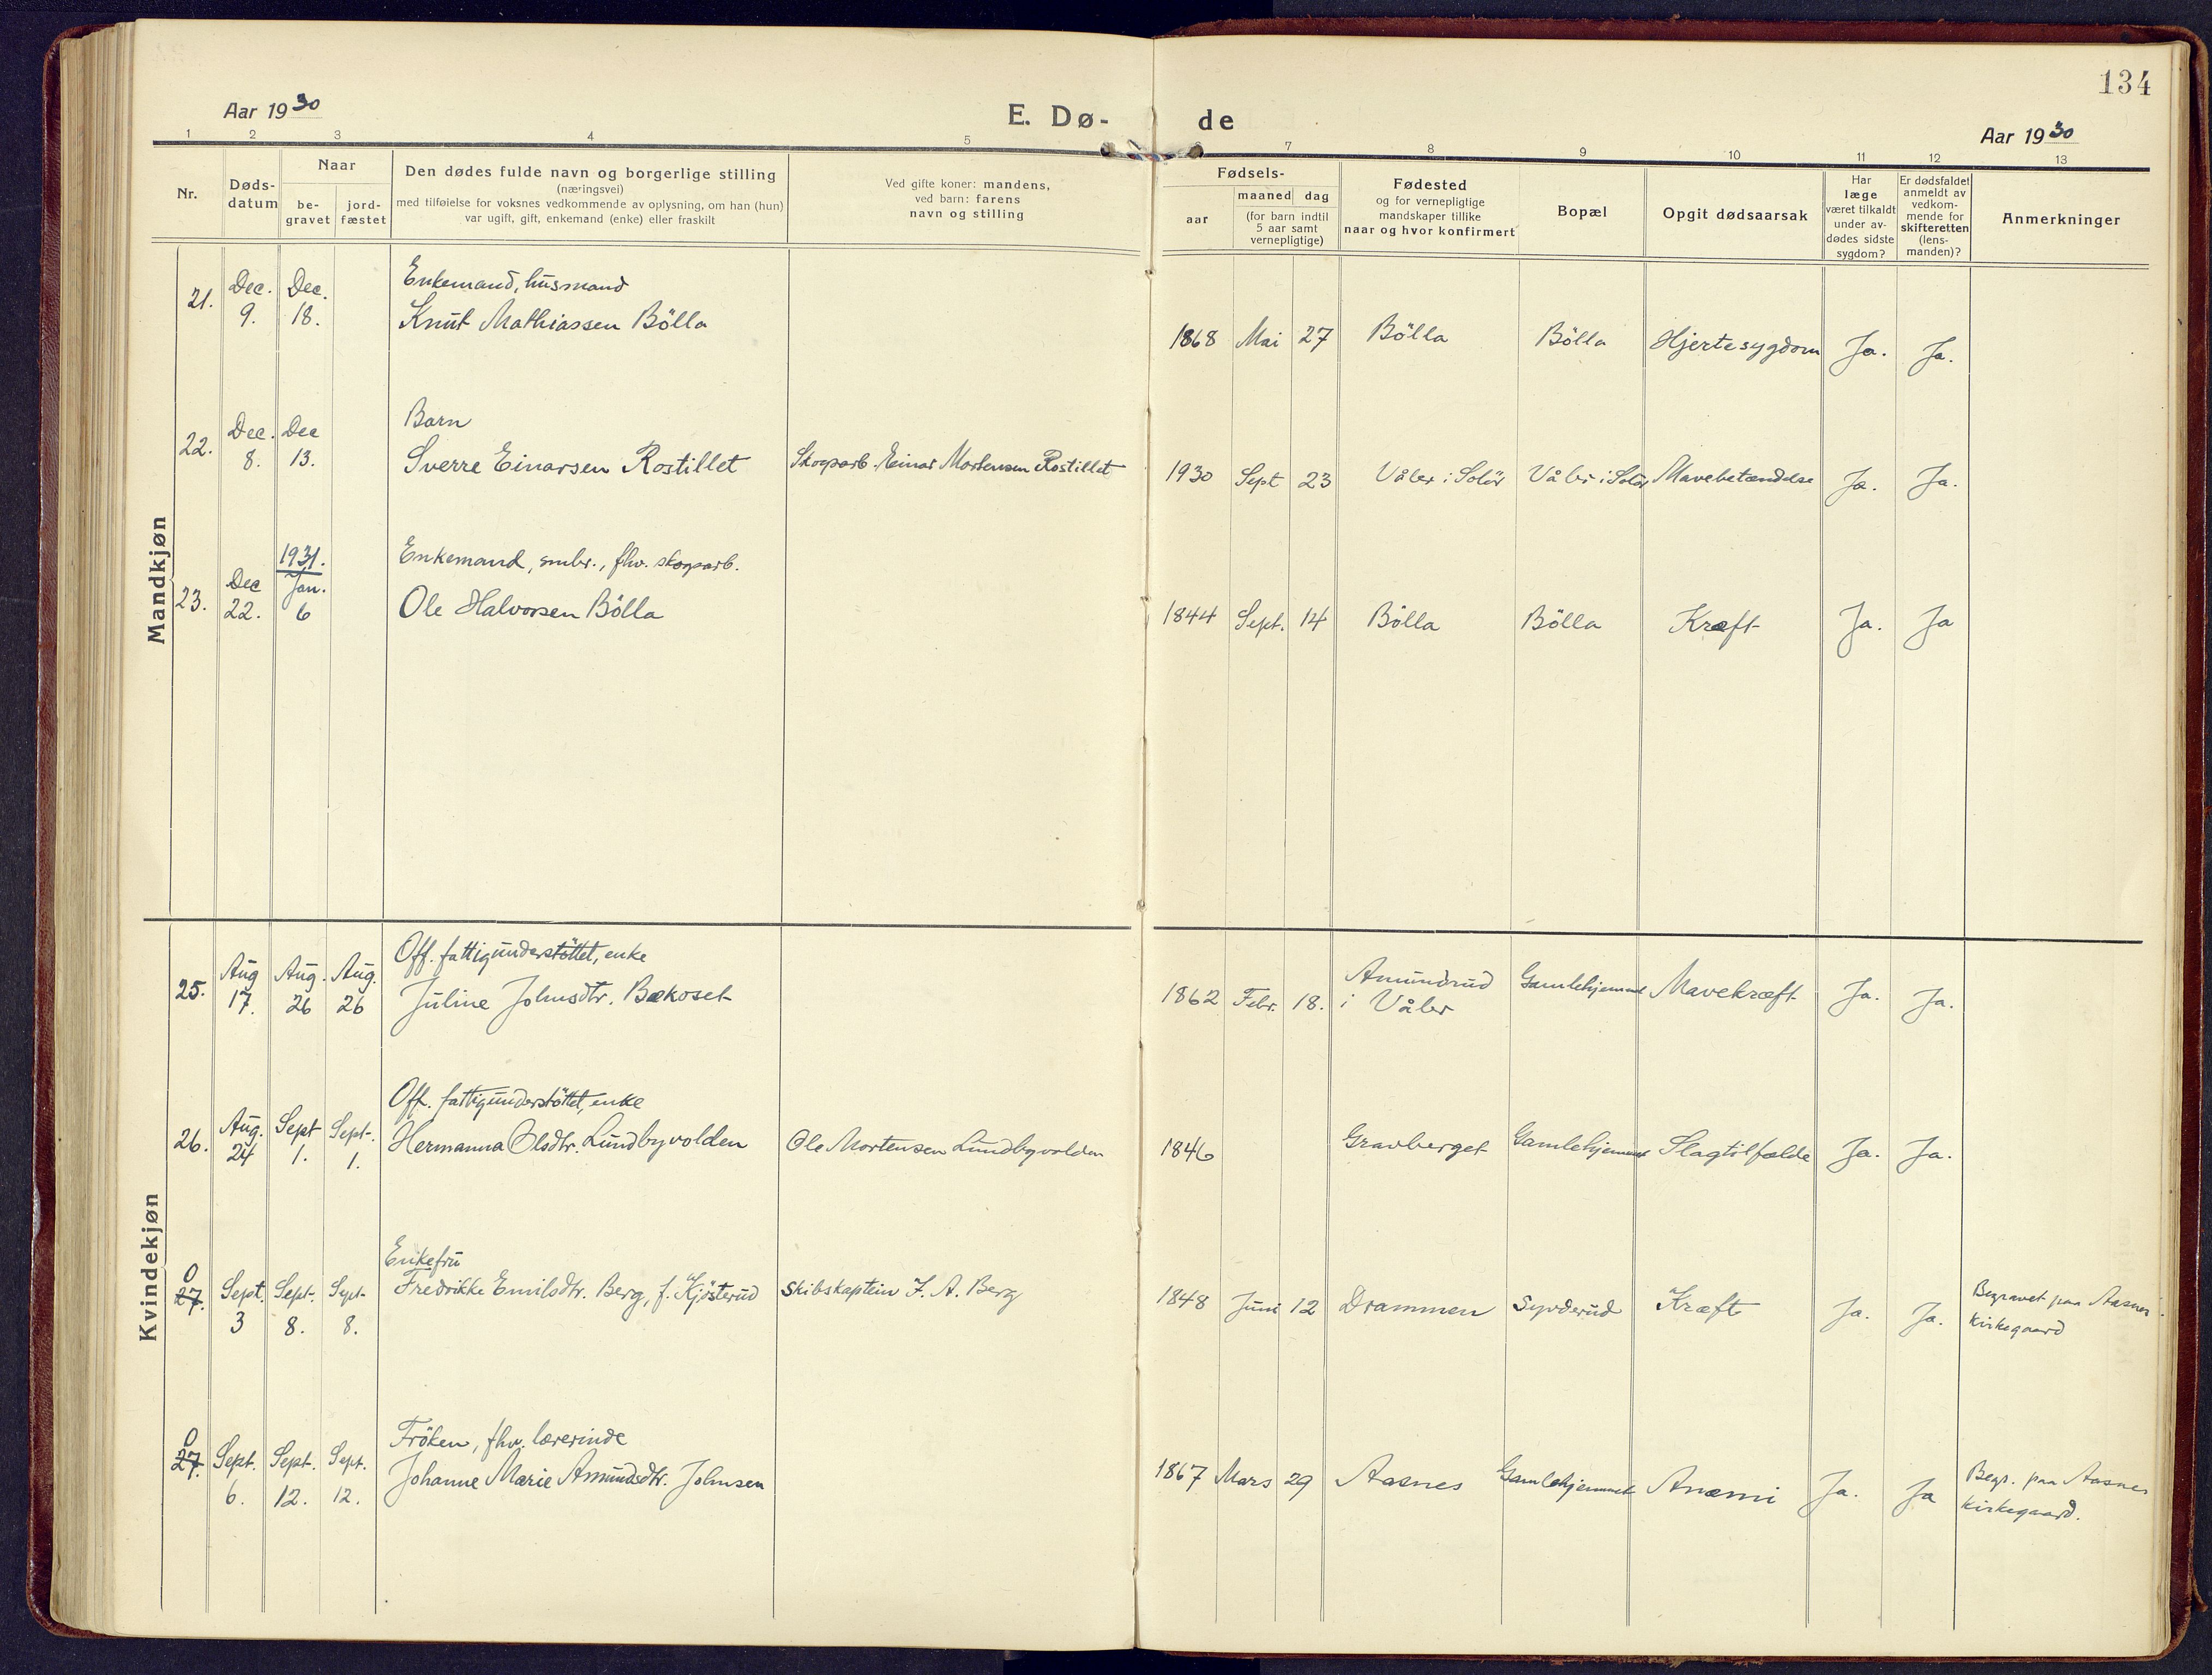 134
Aar 1930
E. Dø-
de
Aar 1930
1 2 3 4 5 7 8 9 10 11 12 13
Nr.
Døds-
datum
Naar
be-
gravet
jord-
fæstet
Den dødes fulde navn og borgerlige stilling
(næringsvei)
med tilføielse for voksnes vedkommende av oplysning, om han (hun)
var ugift, gift, enkemand (enke) eller fraskilt
Ved gifte koner: mandens,
ved barn: farens
navn og stilling
Fødsels-
aar
maaned dag
(for barn indtil
5 aar samt
vernepligtige)
Fødested
og for vernepligtige
mandskaper tillike
naar og hvor konfirmert
Bopæl
Opgit dødsaarsak
Har
læge
været tilkaldt
under av-
dødes sidste
sygdom?
Er dødsfaldet
anmeldt av
vedkom-
mende for
skifteretten
(lens-
manden)?
Anmerkninger
Mandkjøn
21. Dec. 9. Dec. 18.
Enkemand, husmand
Knut Mathiassen Bölla
1868 Mai 27 Bölla Bölla Hjertesygdom Ja. Ja.
22. Dec. 8. Dec 13.
Barn
Sverre Einarsen Rostillet
Skogarb. Einar Mortensen Rostillet
1930 Sept 23 Våler i Solör Våler i Solör Mavebetændelse Ja. Ja.
23. Dec 22. 1931. Jan. 6
Enkemand, smbr., fhv. skogarb.
Ole Halvorsen Bölla
1844 Sept. 14 Bölla Bölla Kræft Ja. Ja
Kvindekjøn
25. Aug 17. Aug. 26 Aug. 26
Off. fattigunderstöttet, enke
Juline Johnsdtr. Bækoset
1862 Febr. 18. Amundrud
i Våler
Gamlehjemmet Mavekræft Ja. Ja.
26. Aug. 24 Sept 1. Sept. 1.
Off. fattigunderstöttet, enke
Hermanna Olsdtr. Lundbyvolden
Ole Mortensen Lundbyvolden
1846 Gravberget Gamlehjemmet Slagtilfælde Ja. Ja.
0
27. Sept. 3 Sept. 8. Sept. 8.
Enkefru
Fredrikke Emilsdtr. Berg, f. Kjösterud
Skibskaptein F. A. Berg
1848 Juni 12 Drammen Synderud Kræft Ja. Ja.
Begravet paa Aasnes
Kirkegaard
0
27. Sept. 6. Sept. 12. Sept. 12.
Fröken, fhv. lærerinde
Johanne Marie Amundsdtr. Johnsen
1867 Mars 29 Aasnes Gamlehjemmet Anæmi Ja. Ja
Begr. paa Aasnes
Kirkegaard.